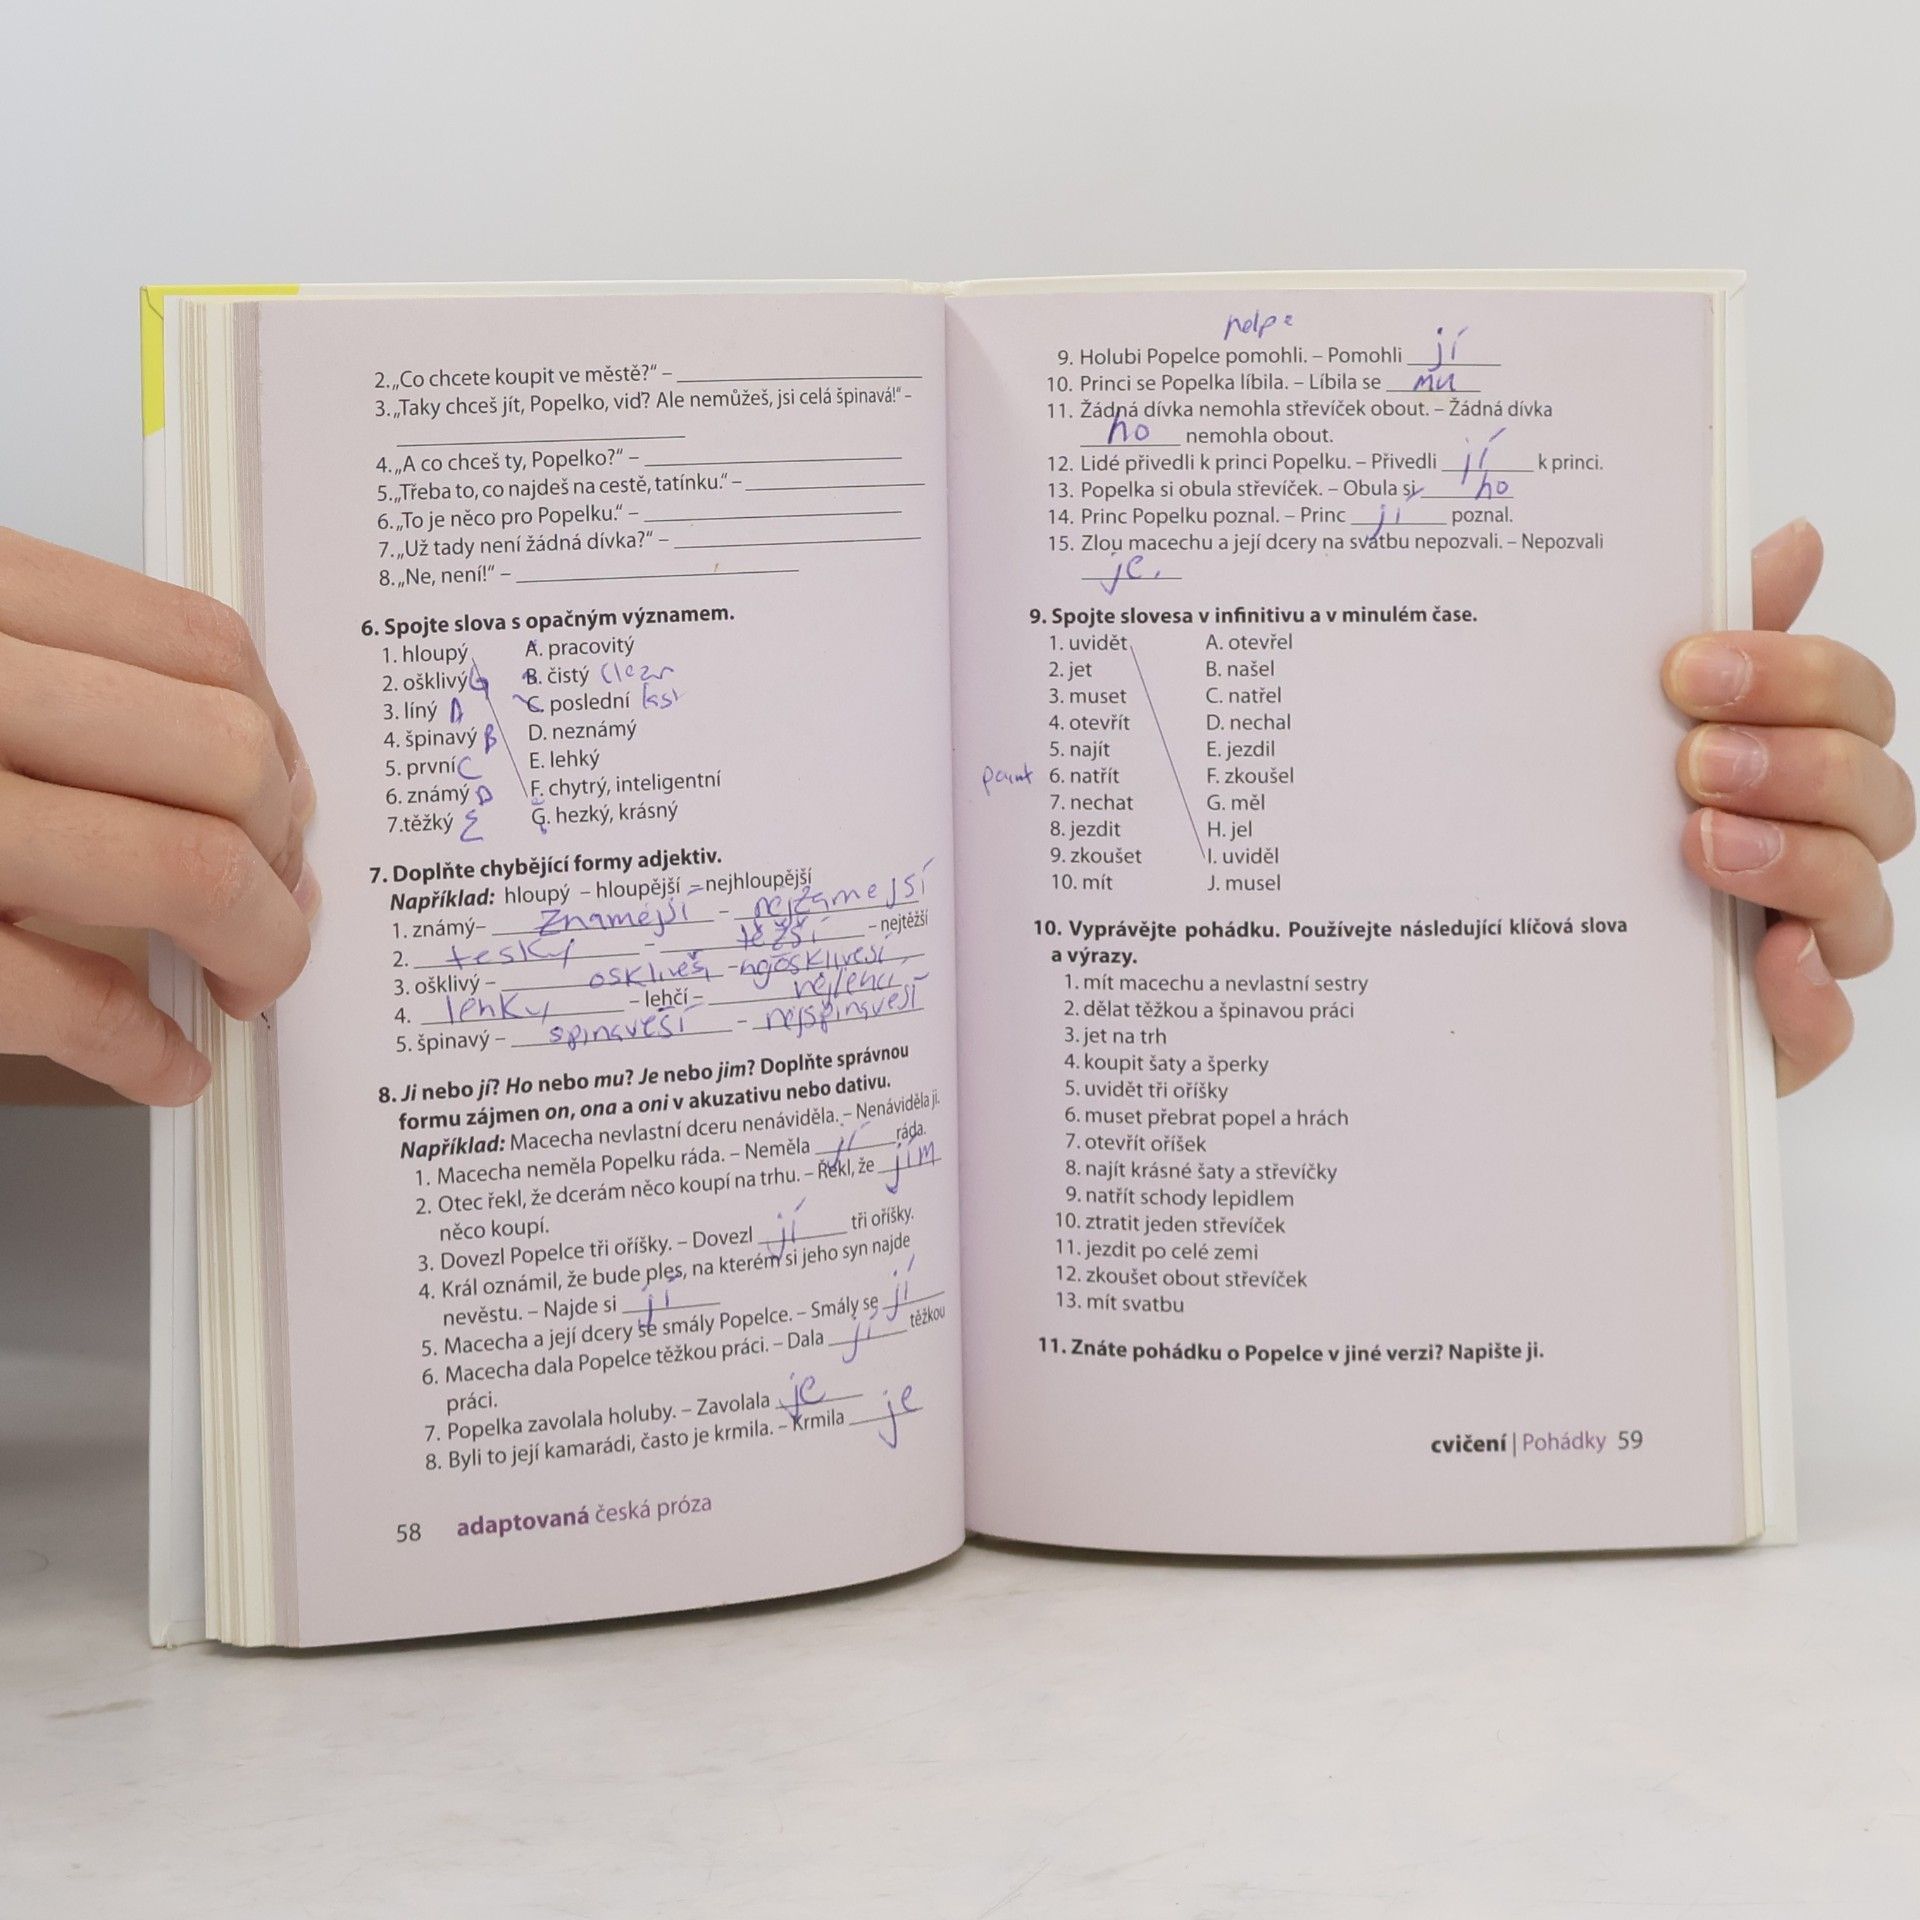 2. „Co chcete koupit ve městě?“ –
3. „Taky chceš jít, Popelko, viď? Ale nemůžeš, jsi celá špinavá!“ –
4. „A co chceš ty, Popelko?“ –
5. „Třeba to, co najdeš na cestě, tatínku.“ –
6. „To je něco pro Popelku.“ –
7. „Už tady není žádná dívka?“ –
8. „Ne, není!“ –
6. Spojte slova s opačným významem.
1. hloupý A. pracovitý
2. ošklivý G B. čistý
3. líný A C. poslední
4. špinavý B D. neznámý
5. první C E. lehký
6. známý D F. chytrý, inteligentní
7. těžký E G. hezký, krásný
7. Doplňte chybějící formy adjektiv.
Například: hloupý – hloupější – nejhloupější
1. známý – –
2. – těžší – nejtěžší
3. ošklivý – –
4. lehky – lehčí –
5. špinavý – –
8. Ji nebo jí? Ho nebo mu? Je nebo jim? Doplňte správnou
formu zájmen on, ona a oni v akuzativu nebo dativu.
Například: Macecha nevlastní dceru nenáviděla. – Nenáviděla ji.
1. Macecha neměla Popelku ráda. – Neměla jí ráda.
2. Otec řekl, že dcerám něco koupí na trhu. – Řekl, že jim
něco koupí.
3. Dovezl Popelce tři oříšky. – Dovezl jí tři oříšky.
4. Král oznámil, že bude ples, na kterém si jeho syn najde
nevěstu. – Najde si ji
5. Macecha a její dcery se smály Popelce. – Smály se jí
6. Macecha dala Popelce těžkou práci. – Dala jí těžkou
práci.
7. Popelka zavolala holuby. – Zavolala je
8. Byli to její kamarádi, často je krmila. – Krmila je
58 adaptovaná česká próza
help
9. Holubi Popelce pomohli. – Pomohli jí
10. Princi se Popelka líbila. – Líbila se mu
11. Žádná dívka nemohla střevíček obout. – Žádná dívka
ho nemohla obout.
12. Lidé přivedli k princi Popelku. – Přivedli jí k princi.
13. Popelka si obula střevíček. – Obula si ho
14. Princ Popelku poznal. – Princ ji poznal.
15. Zlou macechu a její dcery na svatbu nepozvali. – Nepozvali
je.
9. Spojte slovesa v infinitivu a v minulém čase.
1. uvidět A. otevřel
2. jet B. našel
3. muset C. natřel
4. otevřít D. nechal
5. najít E. jezdil
paint 6. natřít F. zkoušel
7. nechat G. měl
8. jezdit H. jel
9. zkoušet I. uviděl
10. mít J. musel
10. Vyprávějte pohádku. Používejte následující klíčová slova
a výrazy.
1. mít macechu a nevlastní sestry
2. dělat těžkou a špinavou práci
3. jet na trh
4. koupit šaty a šperky
5. uvidět tři oříšky
6. muset přebrat popel a hrách
7. otevřít oříšek
8. najít krásné šaty a střevíčky
9. natřít schody lepidlem
10. ztratit jeden střevíček
11. jezdit po celé zemi
12. zkoušet obout střevíček
13. mít svatbu
11. Znáte pohádku o Popelce v jiné verzi? Napište ji.
cvičení | Pohádky 59